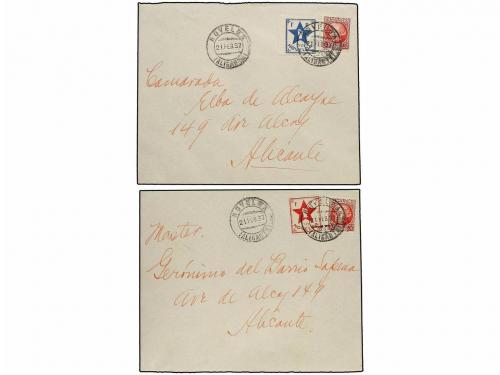 NOVELDA
21 FEB 37
(ALICANTE)
Camarada
Elba de Alcayne
149 Avr Alcoy
Alicante
NOVELDA
21 FEB 37
(ALICANTE)
Gerónimo del Barrio
Avr de Alcoy 149
Alicante.